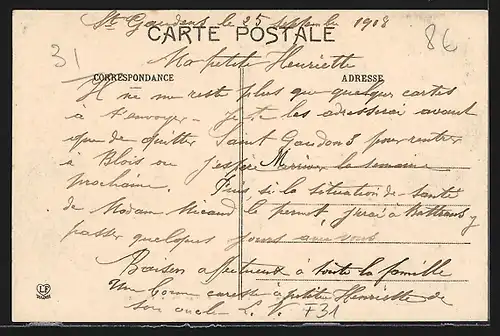 St Gaudens le 25 septembre 1908
CARTE POSTALE
31
86
Ma petite Henriette
CORRESPONDANCE
ADRESSE
Il ne me reste plus que quelques cartes
à t'envoyer - je te les adresserai avant
que de quitter Saint Gaudens pour rentrer
à Blois ou j'espère arriver la semaine
prochaine. Puis si la situation de santé
de Madam le permet, j'irai à
passer quelques jours avec vous
Baisers affectueux à toute la famille
Une bonne caresse à petite Henriette de
son oncle
F31